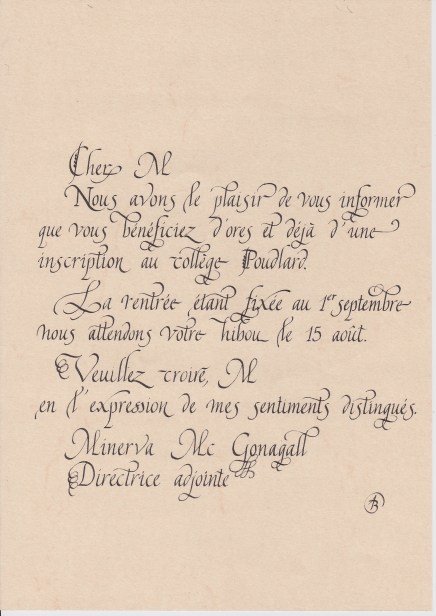 Cher M
Nous avons le plaisir de vous informer
que vous bénéficiez d'ores et déjà d'une
inscription au collège Poudlard.
La rentrée étant fixée au 1er septembre
nous attendons votre hibou le 15 août.
Veuillez croire, M
en l'expression de mes sentiments distingués.
Minerva Mc Gonagall
Directrice adjointe